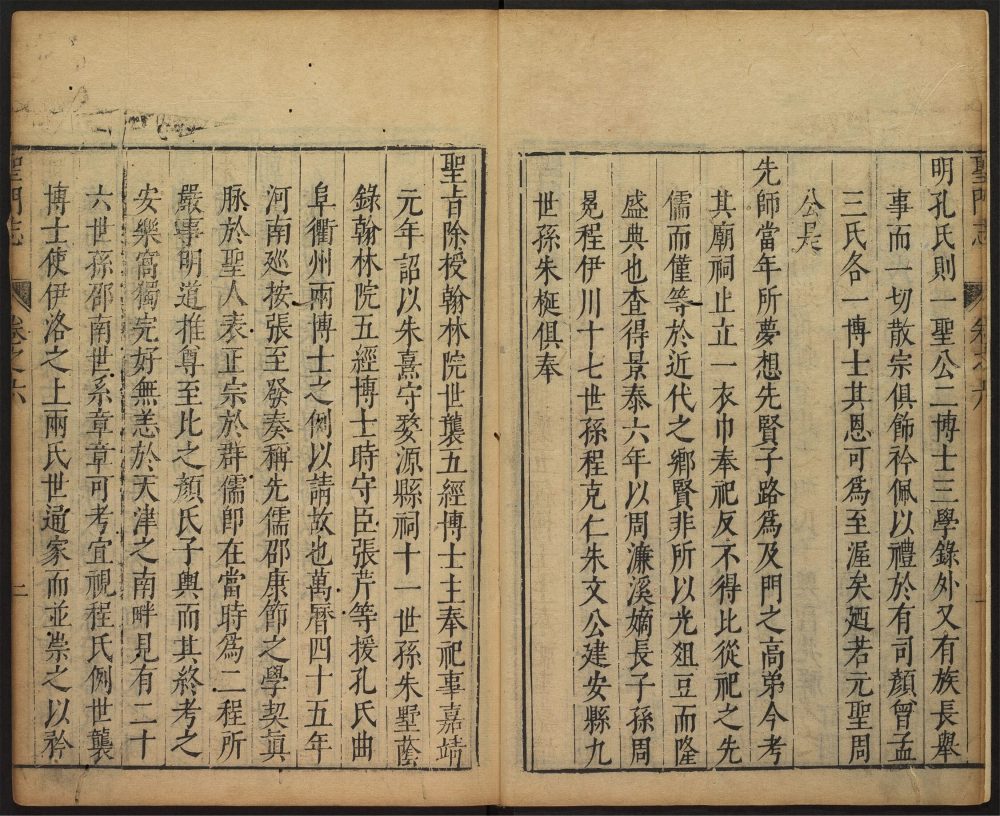 聖門志
卷之六
一
明孔氏則一聖公二博士三學錄外又有族長舉
事而一切散宗俱飾衿佩以禮於有司顏曾孟
三氏各一博士其恩可為至渥矣廼若元聖周
公是
先師當年所夢想先賢子路為及門之高弟今考
其廟祠止立一衣巾奉祀反不得比從祀之先
儒而僅等於近代之鄉賢非所以光俎豆而隆
盛典也查得景泰六年以周濂溪嫡長子孫周
冕程伊川十七世孫程克仁朱文公建安縣九
世孫朱梴俱奉
聖旨除授翰林院世襲五經博士主奉祀事嘉靖
元年詔以朱熹守婺源縣祠十一世孫朱墅蔭
錄翰林院五經博士時守臣張芹等援孔氏曲
阜衢州兩博士之例以請故也萬曆四十五年
河南廵按張至發奏稱先儒邵康節之學契眞
脉於聖人表正宗於群儒卽在當時為二程所
嚴事明道推尊至比之顏氏子輿而其終考之
安樂窩獨完好無恙於天津之南畔見有二十
六世孫邵南世系章章可考宜視程氏例世襲
博士使伊洛之上兩氏世通家而並崇之以衿
聖門志
卷之六
二